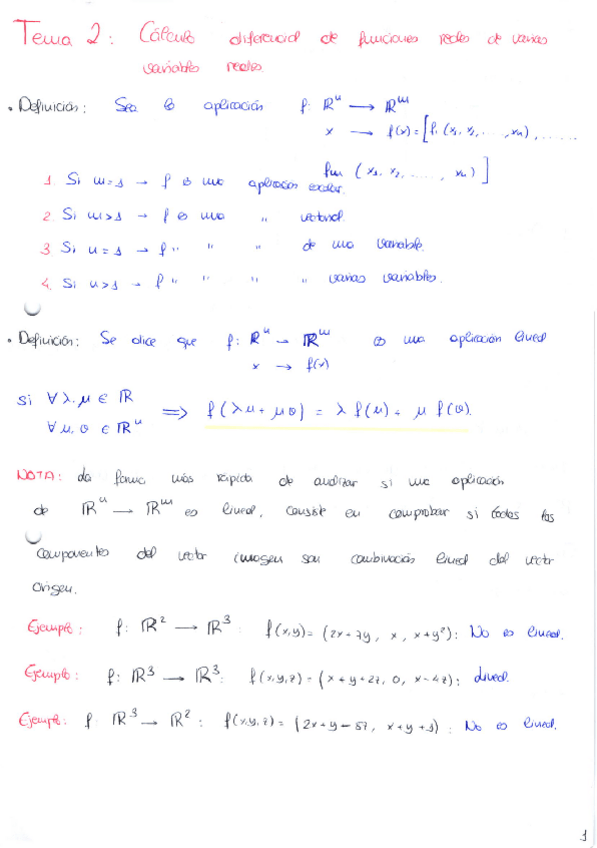 Tema 2: Cálculo diferencial de funciones reales de varias
variables reales.
• Definición: Sea la aplicación f: ℝⁿ → ℝᵐ
x → f(x) = [f₁(x₁, x₂, ..., xₙ), ......
fm (x₁, x₂, ....., xₙ)]
1 Si m=1 → f es una aplicación escalar.
2. Si m>1 → f es una " vectorial
3 Si n=1 → f " " " de una variable.
4. Si n>1 → f " " " " varias variables.
• Definición: Se dice que f: ℝⁿ → ℝᵐ es una aplicación lineal
x → f(x)
si ∀ λ, μ ∈ ℝ
∀ u, v ∈ ℝⁿ ⟹ f(λu + μv) = λ f(u) + μ f(v).
NOTA: La forma más rápida de analizar si una aplicación
de ℝⁿ → ℝᵐ es lineal, consiste en comprobar si todas las
componentes del vector imagen son combinación lineal del vector
origen.
Ejemplo: f: ℝ² → ℝ³ f(x,y) = (2x+7y, x, x+y²): No es lineal.
Ejemplo: f: ℝ³ → ℝ³: f(x,y,z) = (x+y+2z, 0, x-4z): Lineal.
Ejemplo: f: ℝ³ → ℝ²: f(x,y,z) = (2x+y-5z, x+y+1): No es lineal.
1